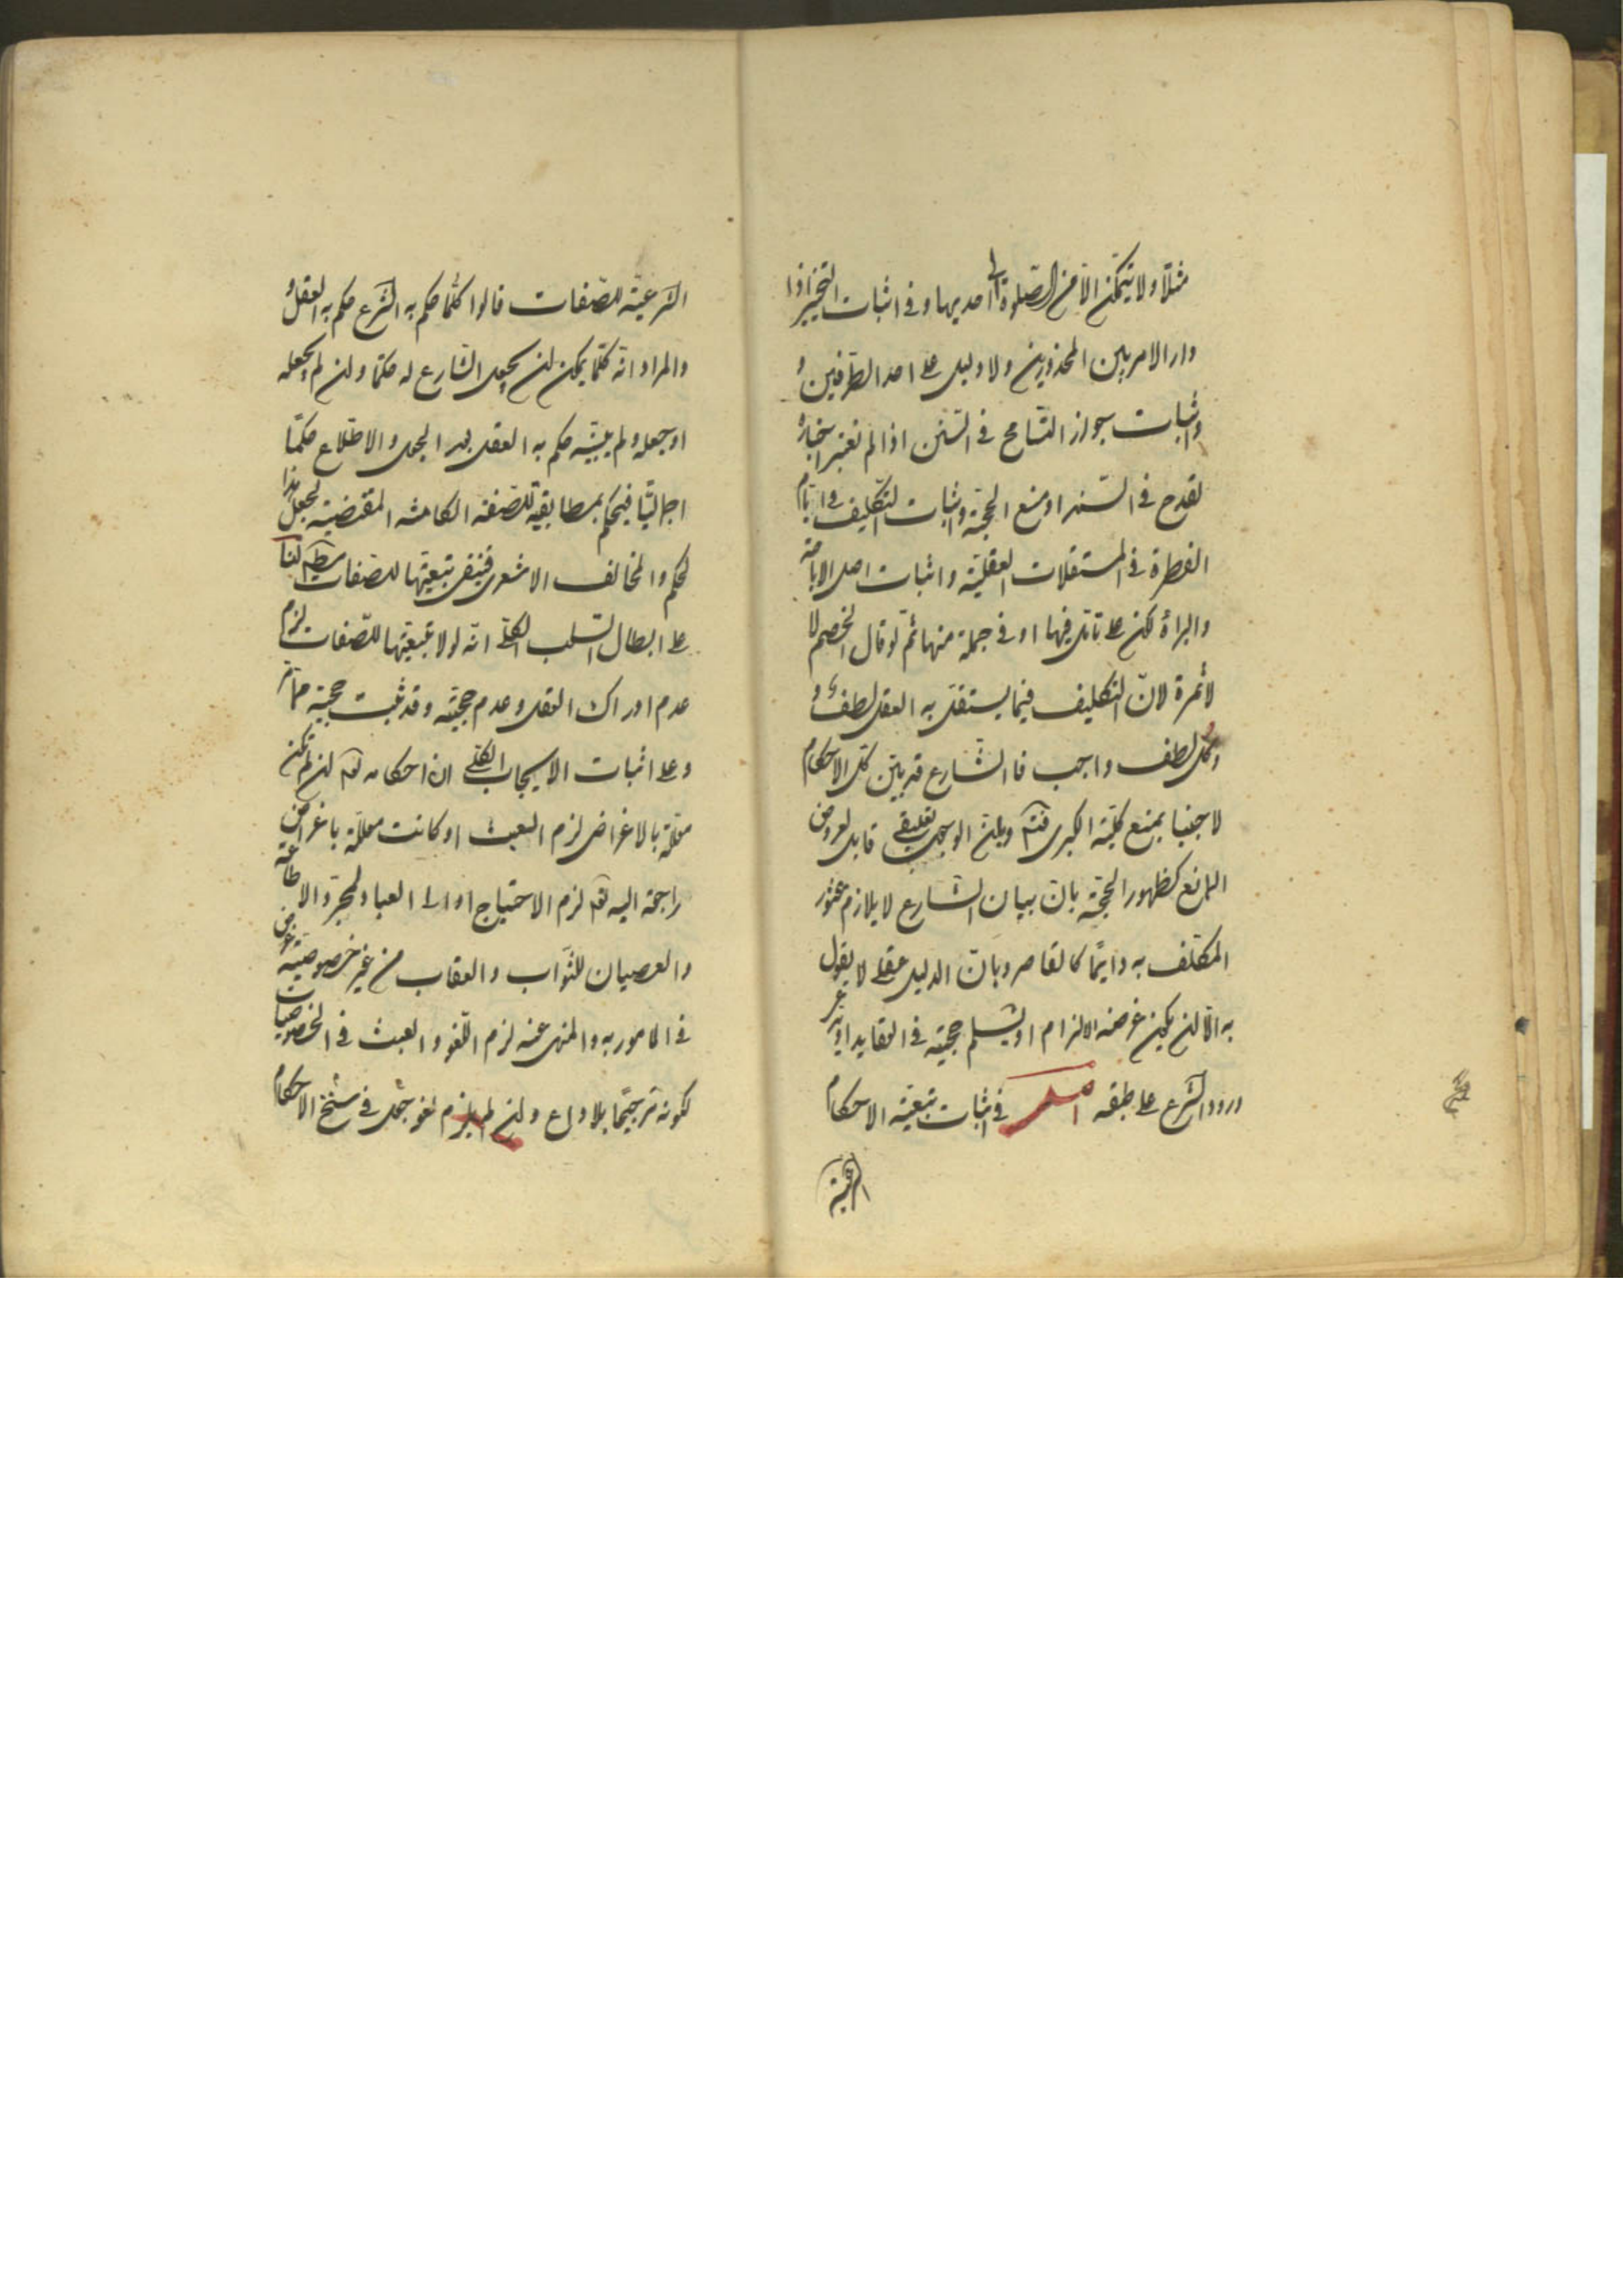 مثلا ولا يتمكن الا من الصلوة الى احديها وفى اثبات التخيير اذا
دار الامر بين المحذورين ولا دليل على احد الطرفين و
واثبات جواز التسامح فى السنن اذا لم نعتبر اخباره
لقدح فى السند او منع الحجية واثبات التكليف فى ايام
الفطرة فى المستقلات العقلية واثبات اصل الاباحة
والبراءة لكن على تامل فيها او فى جملة منها ثم لو قال الخصم لا
لا ثمرة لان التكليف فيما يستقل به العقل لطف و
وكل لطف واجب فالشارع قد بين كل الاحكام
لاجبنا بمنع كلية الكبرى فتم قابل لعروض
المانع كظهور الحجة بان بيان الشارع لا يلازم عثور
المكلف به دايما كالقاصر وبان الدليل عقلى لا يقول
به الا لن يكون غرضه الالزام او يسلم حجيته فى العقايد او
ورود الشرع على طبقه اصل فى اثبات تبعية الاحكام
الشرعية
الشرعية للصفات قالوا كلما حكم به الشرع حكم به العقل و
والمراد انه كلما يمكن لن يجعل الشارع له حكما ولن لم يجعله
او جعله ولم يبينه حكم به العقل بعد الجعل والاطلاع حكما
اجماليا فيحكم بمطابقيته للصفة الكامنة المقتضية لجعل هذا
الحكم والمخالف الاشعرى فينفى تبعيتها للصفات لنا
على ابطال السلب الكلى انه لولا تبعيتها للصفات لزم
عدم ادراك العقل وعدم حجيته وقد ثبت حجيته مما مر
وعلى اثبات الايجاب الكلى ان احكامه تعه لن لم تكن
معللة بالاغراض لزم العبث او كانت معللة باغراض
راجعة اليه تعه لزم الاحتياج او الى العباد لمجرد الاطاعة
والعصيان للثواب والعقاب من غير خصوصية غرض
فى المامور به والمنهى عنه لزم اللغو والعبث فى الخصوصيات
لكونه ترجيحا بلا داع ولن لم يلزم لغو جعل فى سنخ الاحكام